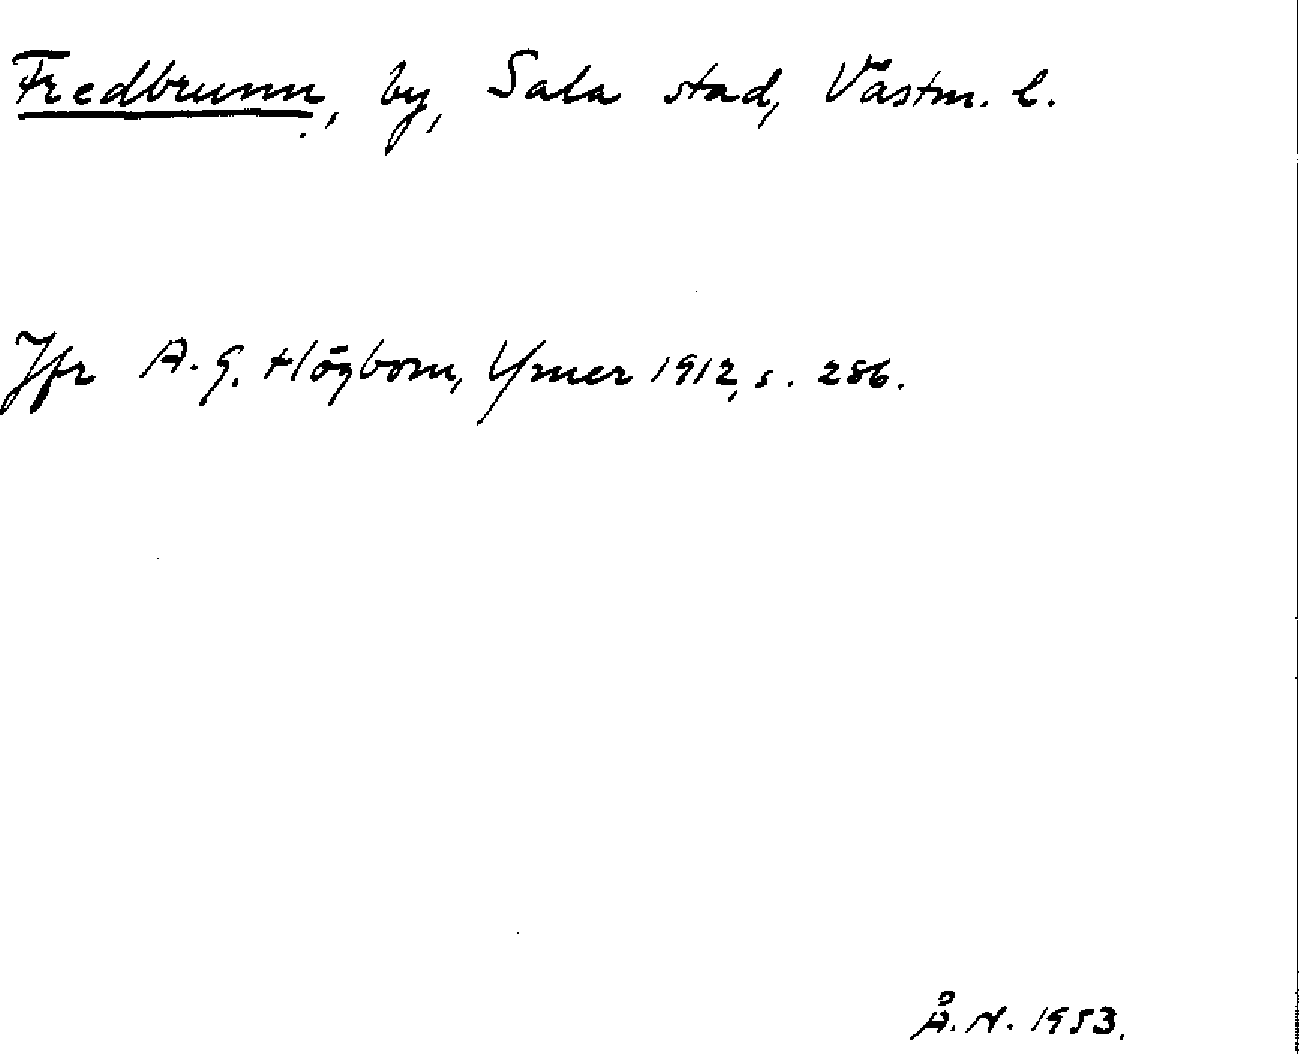 Fredbrunn, by, Sala stad, Västm. l.
Jfr A. G. Högbom, Ymer 1912, s. 286.
Å. N. 1953.